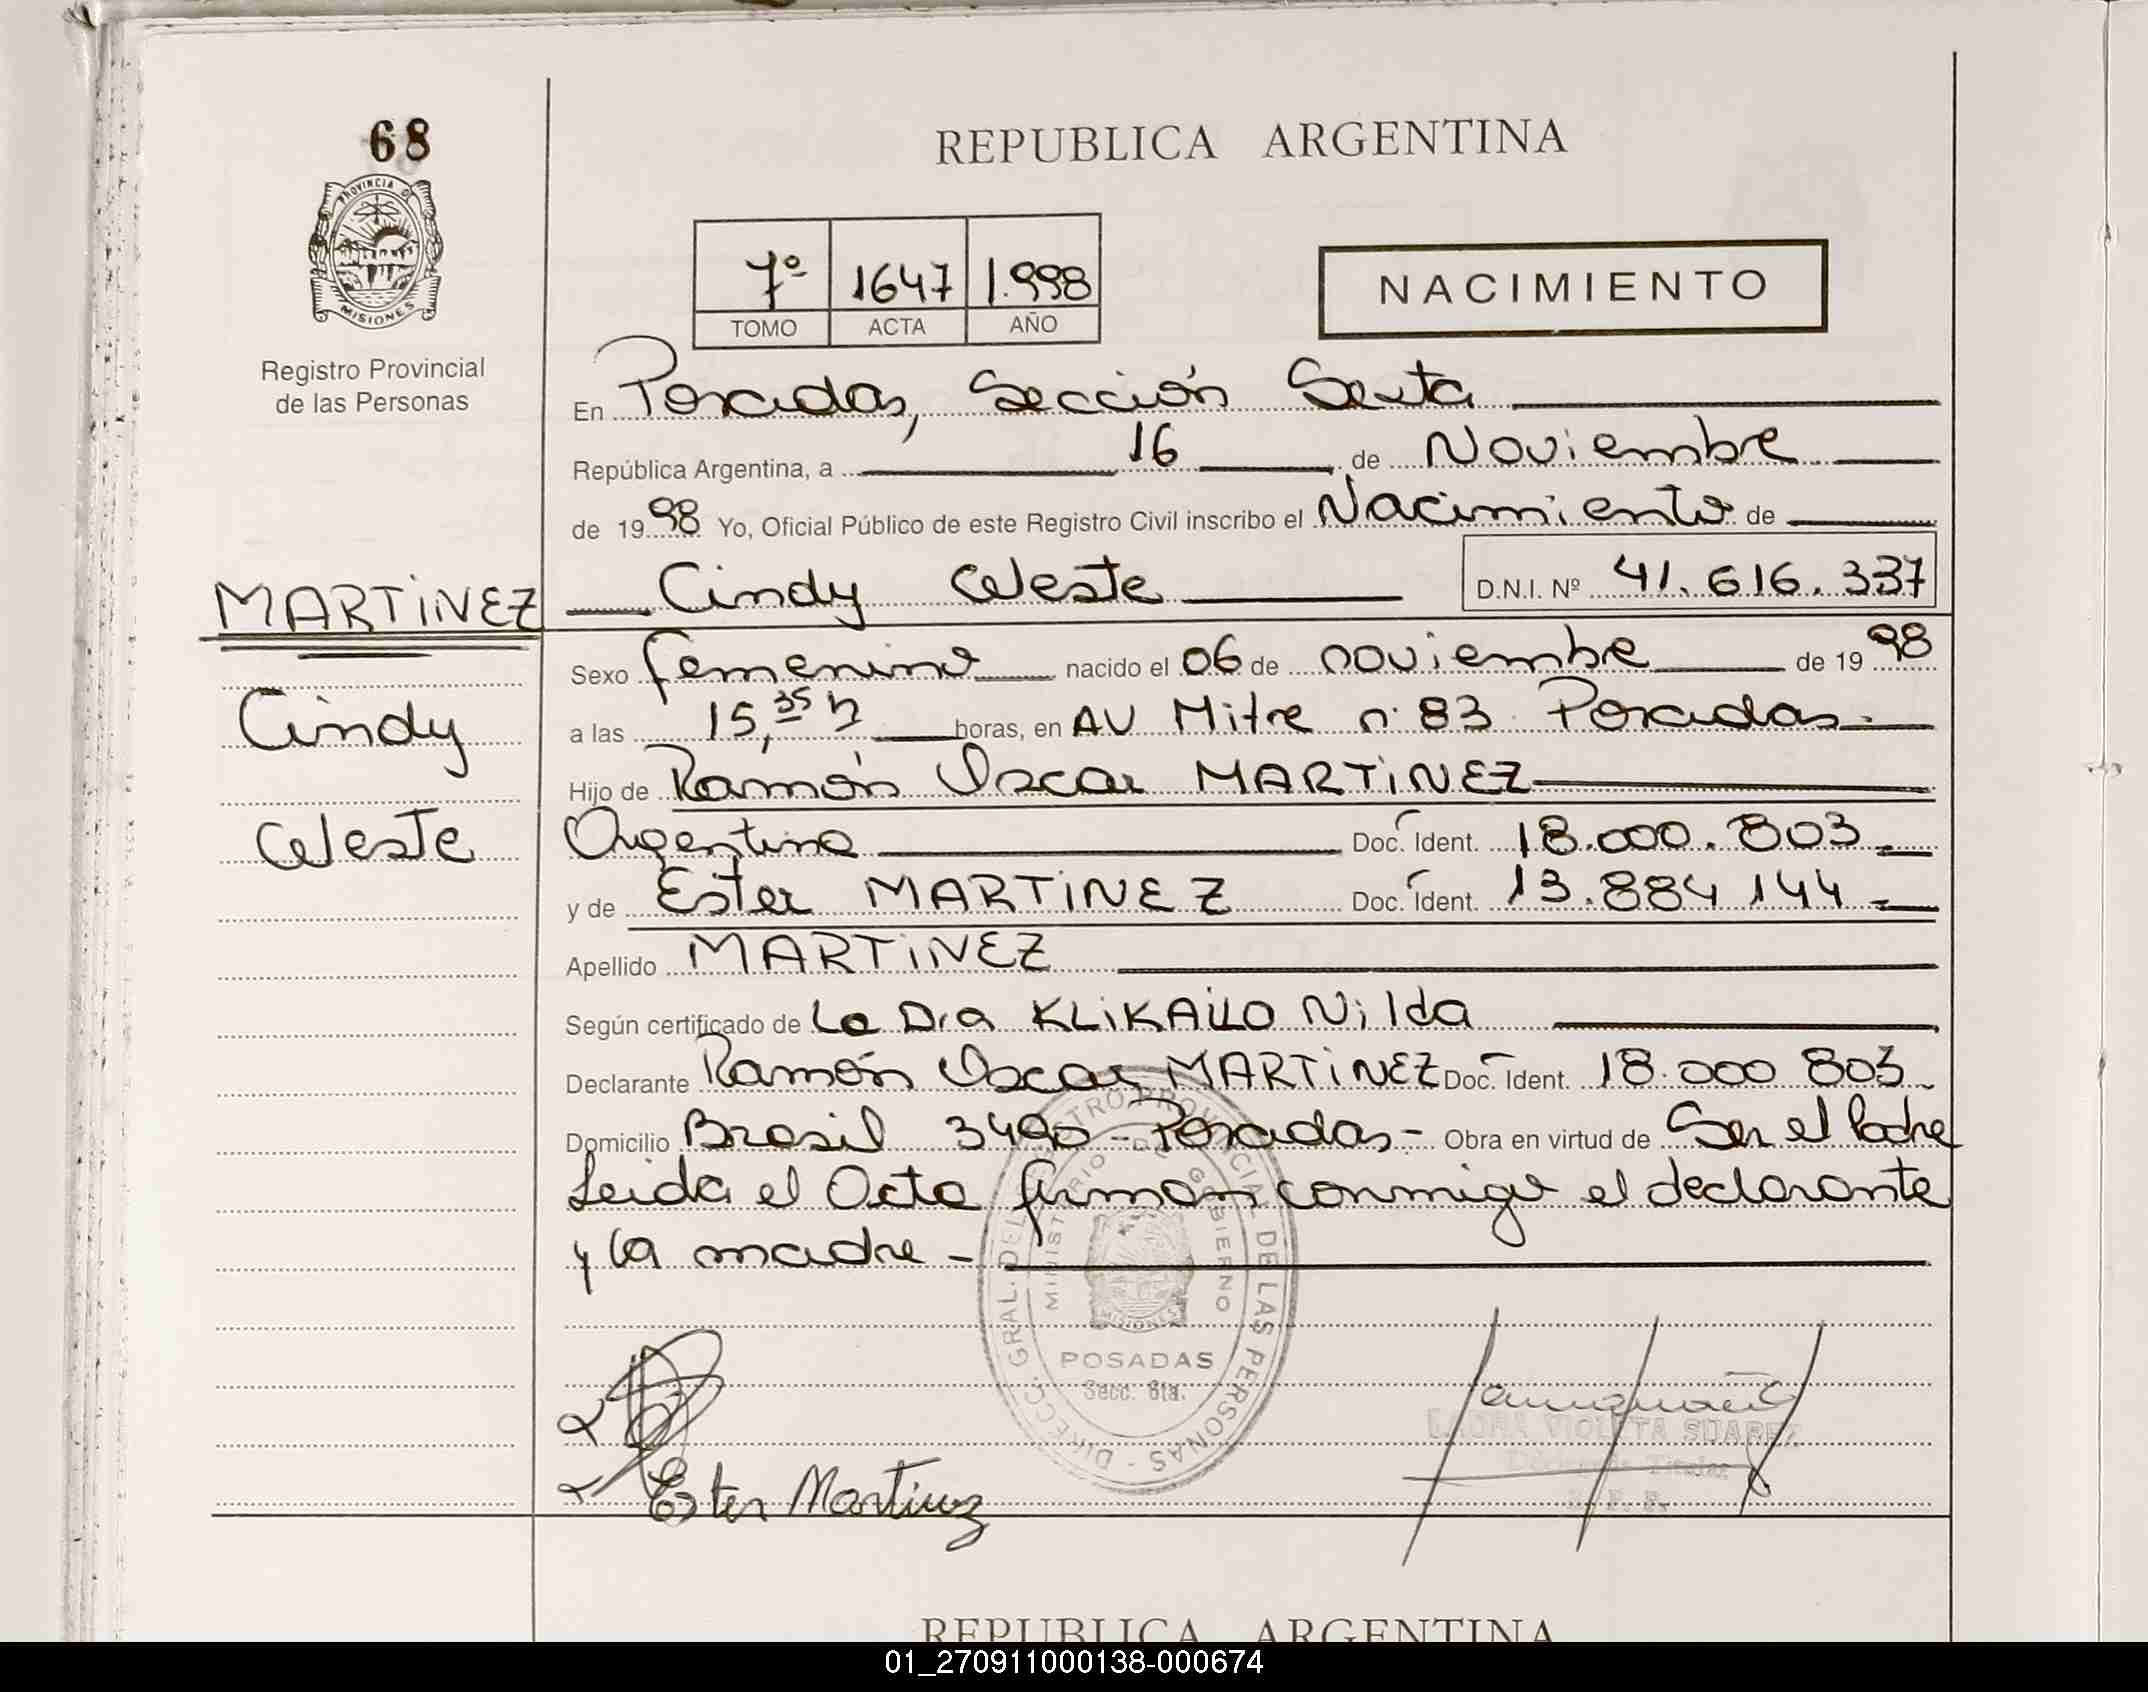 68
PROVINCIA D
MISIONES
Registro Provincial
de las Personas
REPUBLICA ARGENTINA
7º 1647 1.998
TOMO ACTA AÑO
NACIMIENTO
En Posadas, Sección Sexta
República Argentina, a 16 de Noviembre
de 19 98 Yo, Oficial Público de este Registro Civil inscribo el Nacimiento de
MARTINEZ
Cindy Celeste D.N.I. Nº 41.616.337
Sexo femenino nacido el 06 de noviembre de 19 98
Cindy
a las 15,35 h horas, en AV Mitre nº 83 Posadas.
Hijo de Ramón Oscar MARTINEZ
Celeste
Argentina Doc. Ident. 18.000.803
y de Ester MARTINEZ Doc. Ident. 13.884 144
Apellido MARTINEZ
Según certificado de La Dra KLIKAILO Nilda
Declarante Ramón Oscar MARTINEZ Doc. Ident. 18.000 803
Domicilio Brasil 3490 - Posadas - Obra en virtud de Ser el Padre
Leida el Acta firman conmigo el declarante
y la madre -
DIRECC. GRAL. DEL REGISTRO PROVINCIAL DE LAS PERSONAS
MINISTERIO DE GOBIERNO
MISIONES
POSADAS
Secc. 6ta.
VIOLETA SUAREZ
Titular
Ester Martinez
REPUBLICA ARGENTINA
01_270911000138-000674